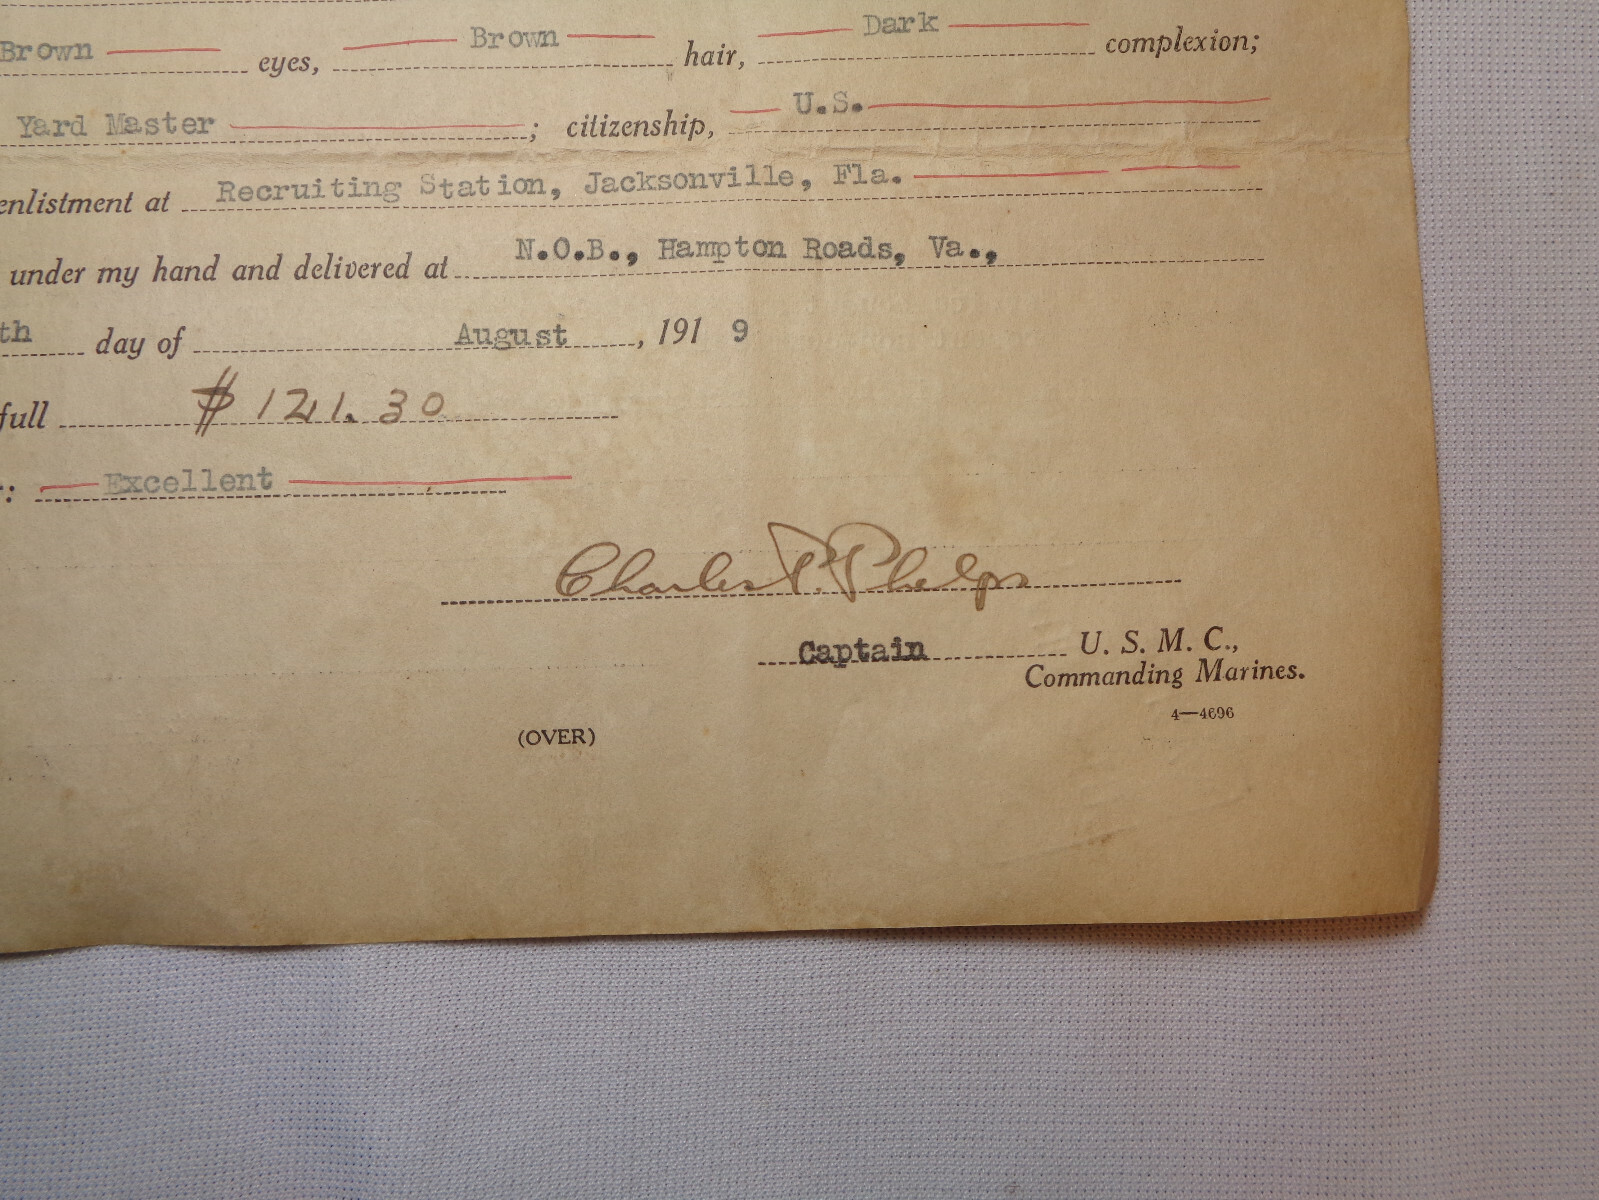 Brown eyes, Brown hair, Dark complexion;
Yard Master ; citizenship, U.S.
enlistment at Recruiting Station, Jacksonville, Fla.
under my hand and delivered at N.O.B., Hampton Roads, Va.,
th day of August , 191 9
full $ 121.30
r: Excellent
Charles P. Phelps
Captain U. S. M. C.,
Commanding Marines.
4—4696
(OVER)